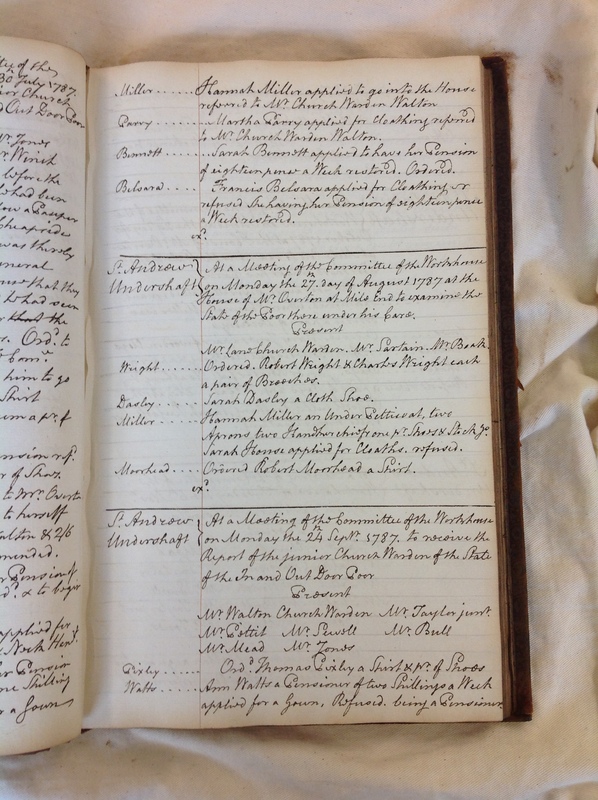 ity of the
30 July 1787.
ior Church
d Out Door Poor
Mr. Jones
r Winch
before the
he had been
low a Pauper
was thereby
eneral
use that they
he had seen
r that the
rs. Ord.d to
Com.e
him to go
Shirt
um a pr. of
ension refd.
r of Shoes.
to Mr. Overto
to herself
alton & 2/6
mended.
r Pension of
d. & to begin
applied for
Neck Hanf.
er Pension
ne Shilling
r a Gown
Miller...... Hannah Miller applied to go into the House
refered to Mr. Church Warden Walton
Parry....... Martha Parry applied for Cloathing refered
to Mr. Church Warden Walton.
Bennett..... Sarah Bennett applied to have her Pension
of eighteen pence a Week restored. Ordered.
Belsara..... Francis Belsara applied for Cloathing or
refused She having her Pension of eighteen pence
a Week restored.
exd.
St. Andrew Undershaft { At a Meeting of the Committee of the Workhouse
on Monday the 27th. day of August 1787 at the
House of Mr. Overton at Mile End to examine the
State of the Poor there under his Care.
Present
Mr. Lane Church Warden. Mr. Sartain. Mr. Beak
Wright...... Ordered. Robert Wright & Charles Wright each
a pair of Breeches.
Dasley...... Sarah Dasley a Cloth Shoe.
Miller...... Hannah Miller an Under Petticoat, two
Aprons two Handkerchiefs one pr. Shoes & Stockgs.
Sarah House applied for Cloaths. refused.
Moorhead.... Ordered Robert Moorhead a Shirt.
exd.
St. Andrew Undershaft { At a Meeting of the Committee of the Workhouse
on Monday the 24th Sepr. 1787. to receive the
Report of the junior Church Warden of the State
of the In and Out Door Poor
Present
Mr. Walton Church Warden Mr. Taylor junr.
Mr. Pettit Mr. Sewell Mr. Bull
Mr. Mead Mr. Jones
Pixley...... Ord.d Thomas Pixly a Shirt & pr. of Shoes
Watts....... Ann Watts a Pensioner of two Shillings a Week
applied for a Gown, Refused. being a Pensioner